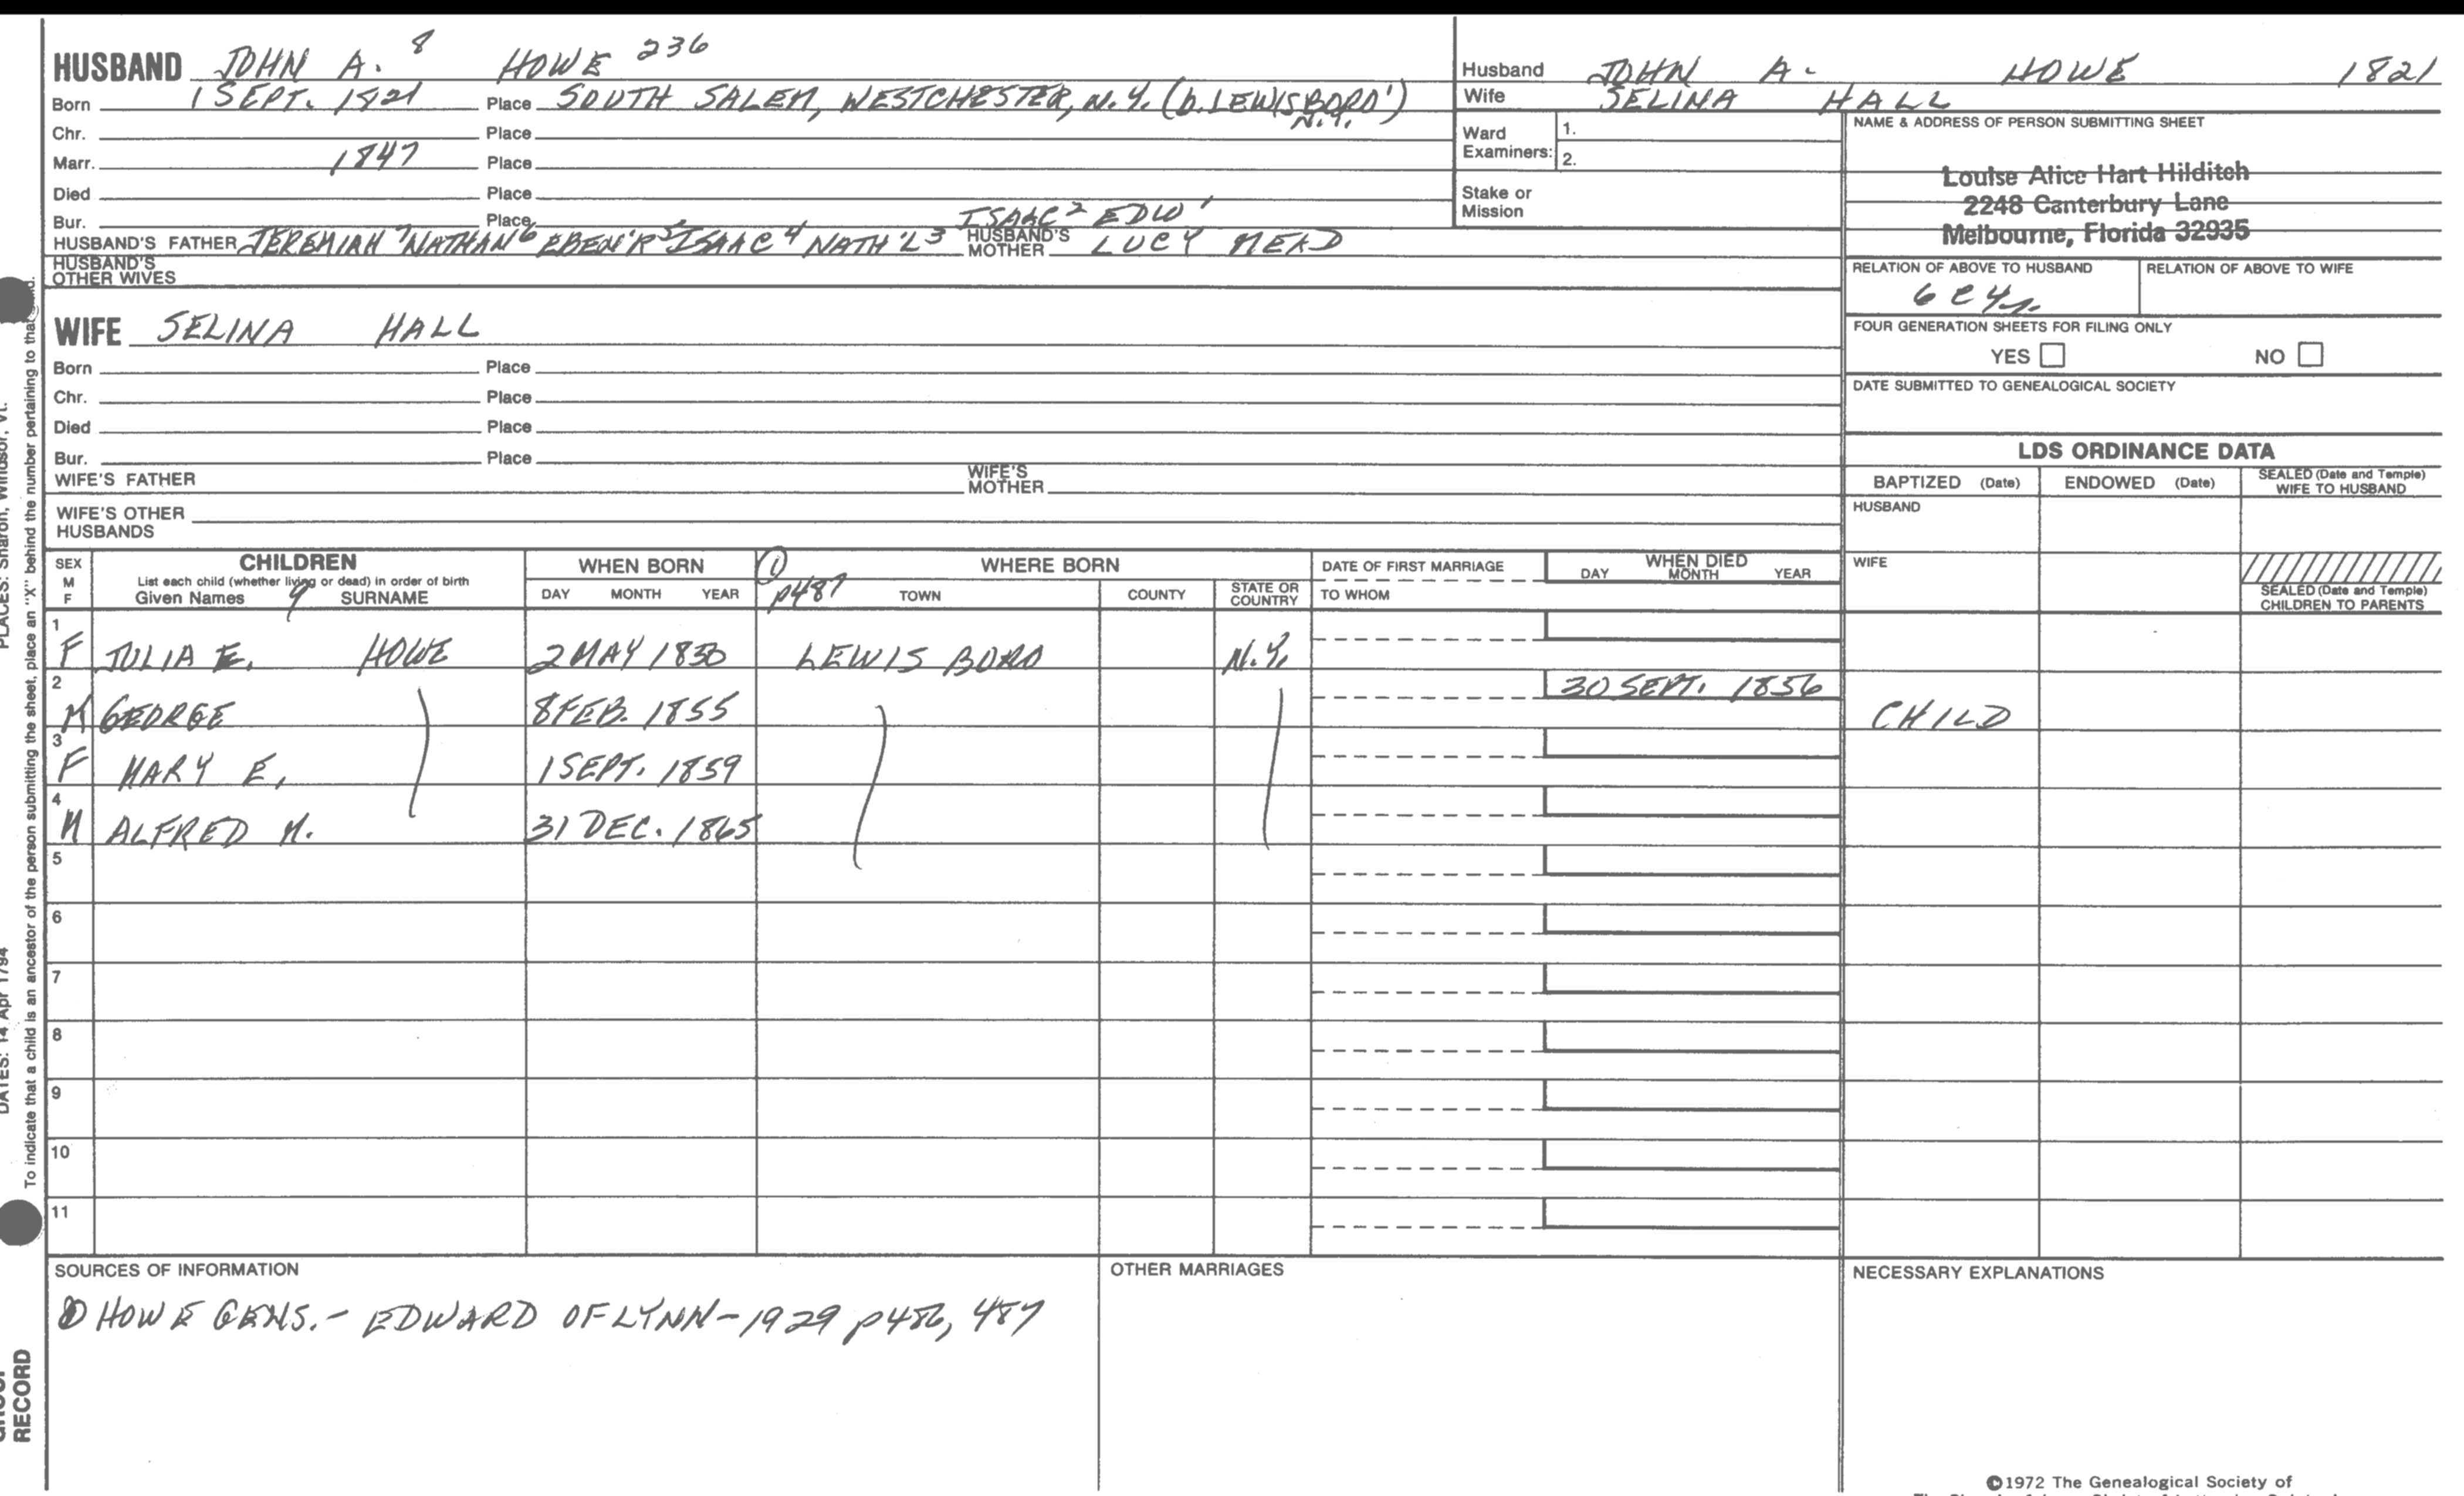 HUSBAND JOHN A. 8 HOWE 236
Born 1 SEPT. 1821 Place SOUTH SALEM, WESTCHESTER, N.Y. (b. LEWISBORO' N.Y.)
Chr. Place
Marr. 1847 Place
Died Place
Bur. Place
ISAAC 2 EDW 1
HUSBAND'S FATHER JEREMIAH 7 NATHAN 6 EBEN'R 5 ISAAC 4 NATH'L 3 HUSBAND'S MOTHER LUCY MEAD
HUSBAND'S OTHER WIVES
WIFE SELINA HALL
Born Place
Chr. Place
Died Place
Bur. Place
WIFE'S FATHER WIFE'S MOTHER
WIFE'S OTHER HUSBANDS
Husband JOHN A. HOWE 1821
Wife SELINA HALL
Ward Examiners: 1. 2.
Stake or Mission
NAME & ADDRESS OF PERSON SUBMITTING SHEET
Louise Alice Hart Hilditch
2248 Canterbury Lane
Melbourne, Florida 32935
RELATION OF ABOVE TO HUSBAND RELATION OF ABOVE TO WIFE
FOUR GENERATION SHEETS FOR FILING ONLY
YES NO
DATE SUBMITTED TO GENEALOGICAL SOCIETY
LDS ORDINANCE DATA
BAPTIZED (Date) ENDOWED (Date) SEALED (Date and Temple) WIFE TO HUSBAND
HUSBAND
WIFE
SEALED (Date and Temple) CHILDREN TO PARENTS
SEX M F
CHILDREN
List each child (whether living or dead) in order of birth
Given Names 9 SURNAME
WHEN BORN
DAY MONTH YEAR
① p487 WHERE BORN
TOWN COUNTY STATE OR COUNTRY
DATE OF FIRST MARRIAGE
TO WHOM
WHEN DIED
DAY MONTH YEAR
1 F JULIA E. HOWE 2 MAY 1850 LEWIS BORO N.Y.
2 M GEORGE 8 FEB. 1855 30 SEPT. 1856 CHILD
3 F MARY E. 1 SEPT. 1859
4 M ALFRED M. 31 DEC. 1865
5
6
7
8
9
10
11
SOURCES OF INFORMATION
① HOWE GENS. - EDWARD OF LYNN - 1929 p486, 487
OTHER MARRIAGES
NECESSARY EXPLANATIONS
©1972 The Genealogical Society of
PLACES: Sharon, Windsor, Vt.
DATES: 14 Apr 1794
To indicate that a child is an ancestor of the person submitting the sheet, place an "X" behind the number pertaining to that
RECORD